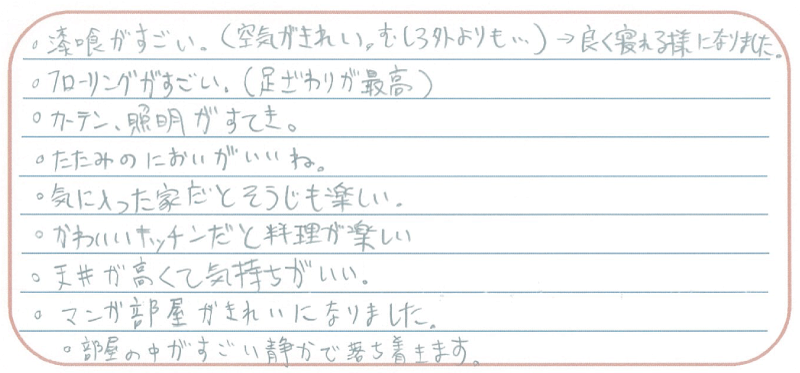 。漆喰がすごい。(空気がきれい。むしろ外よりも…)→良く寝れる様になりました。
。フローリングがすごい。(足ざわりが最高)
。カーテン、照明がすてき。
。たたみのにおいがいいね。
。気に入った家だとそうじも楽しい。
。かわいいキッチンだと料理が楽しい
。天井が高くて気持ちがいい。
。マンガ部屋がきれいになりました。
。部屋の中がすごい静かで落ち着きます。